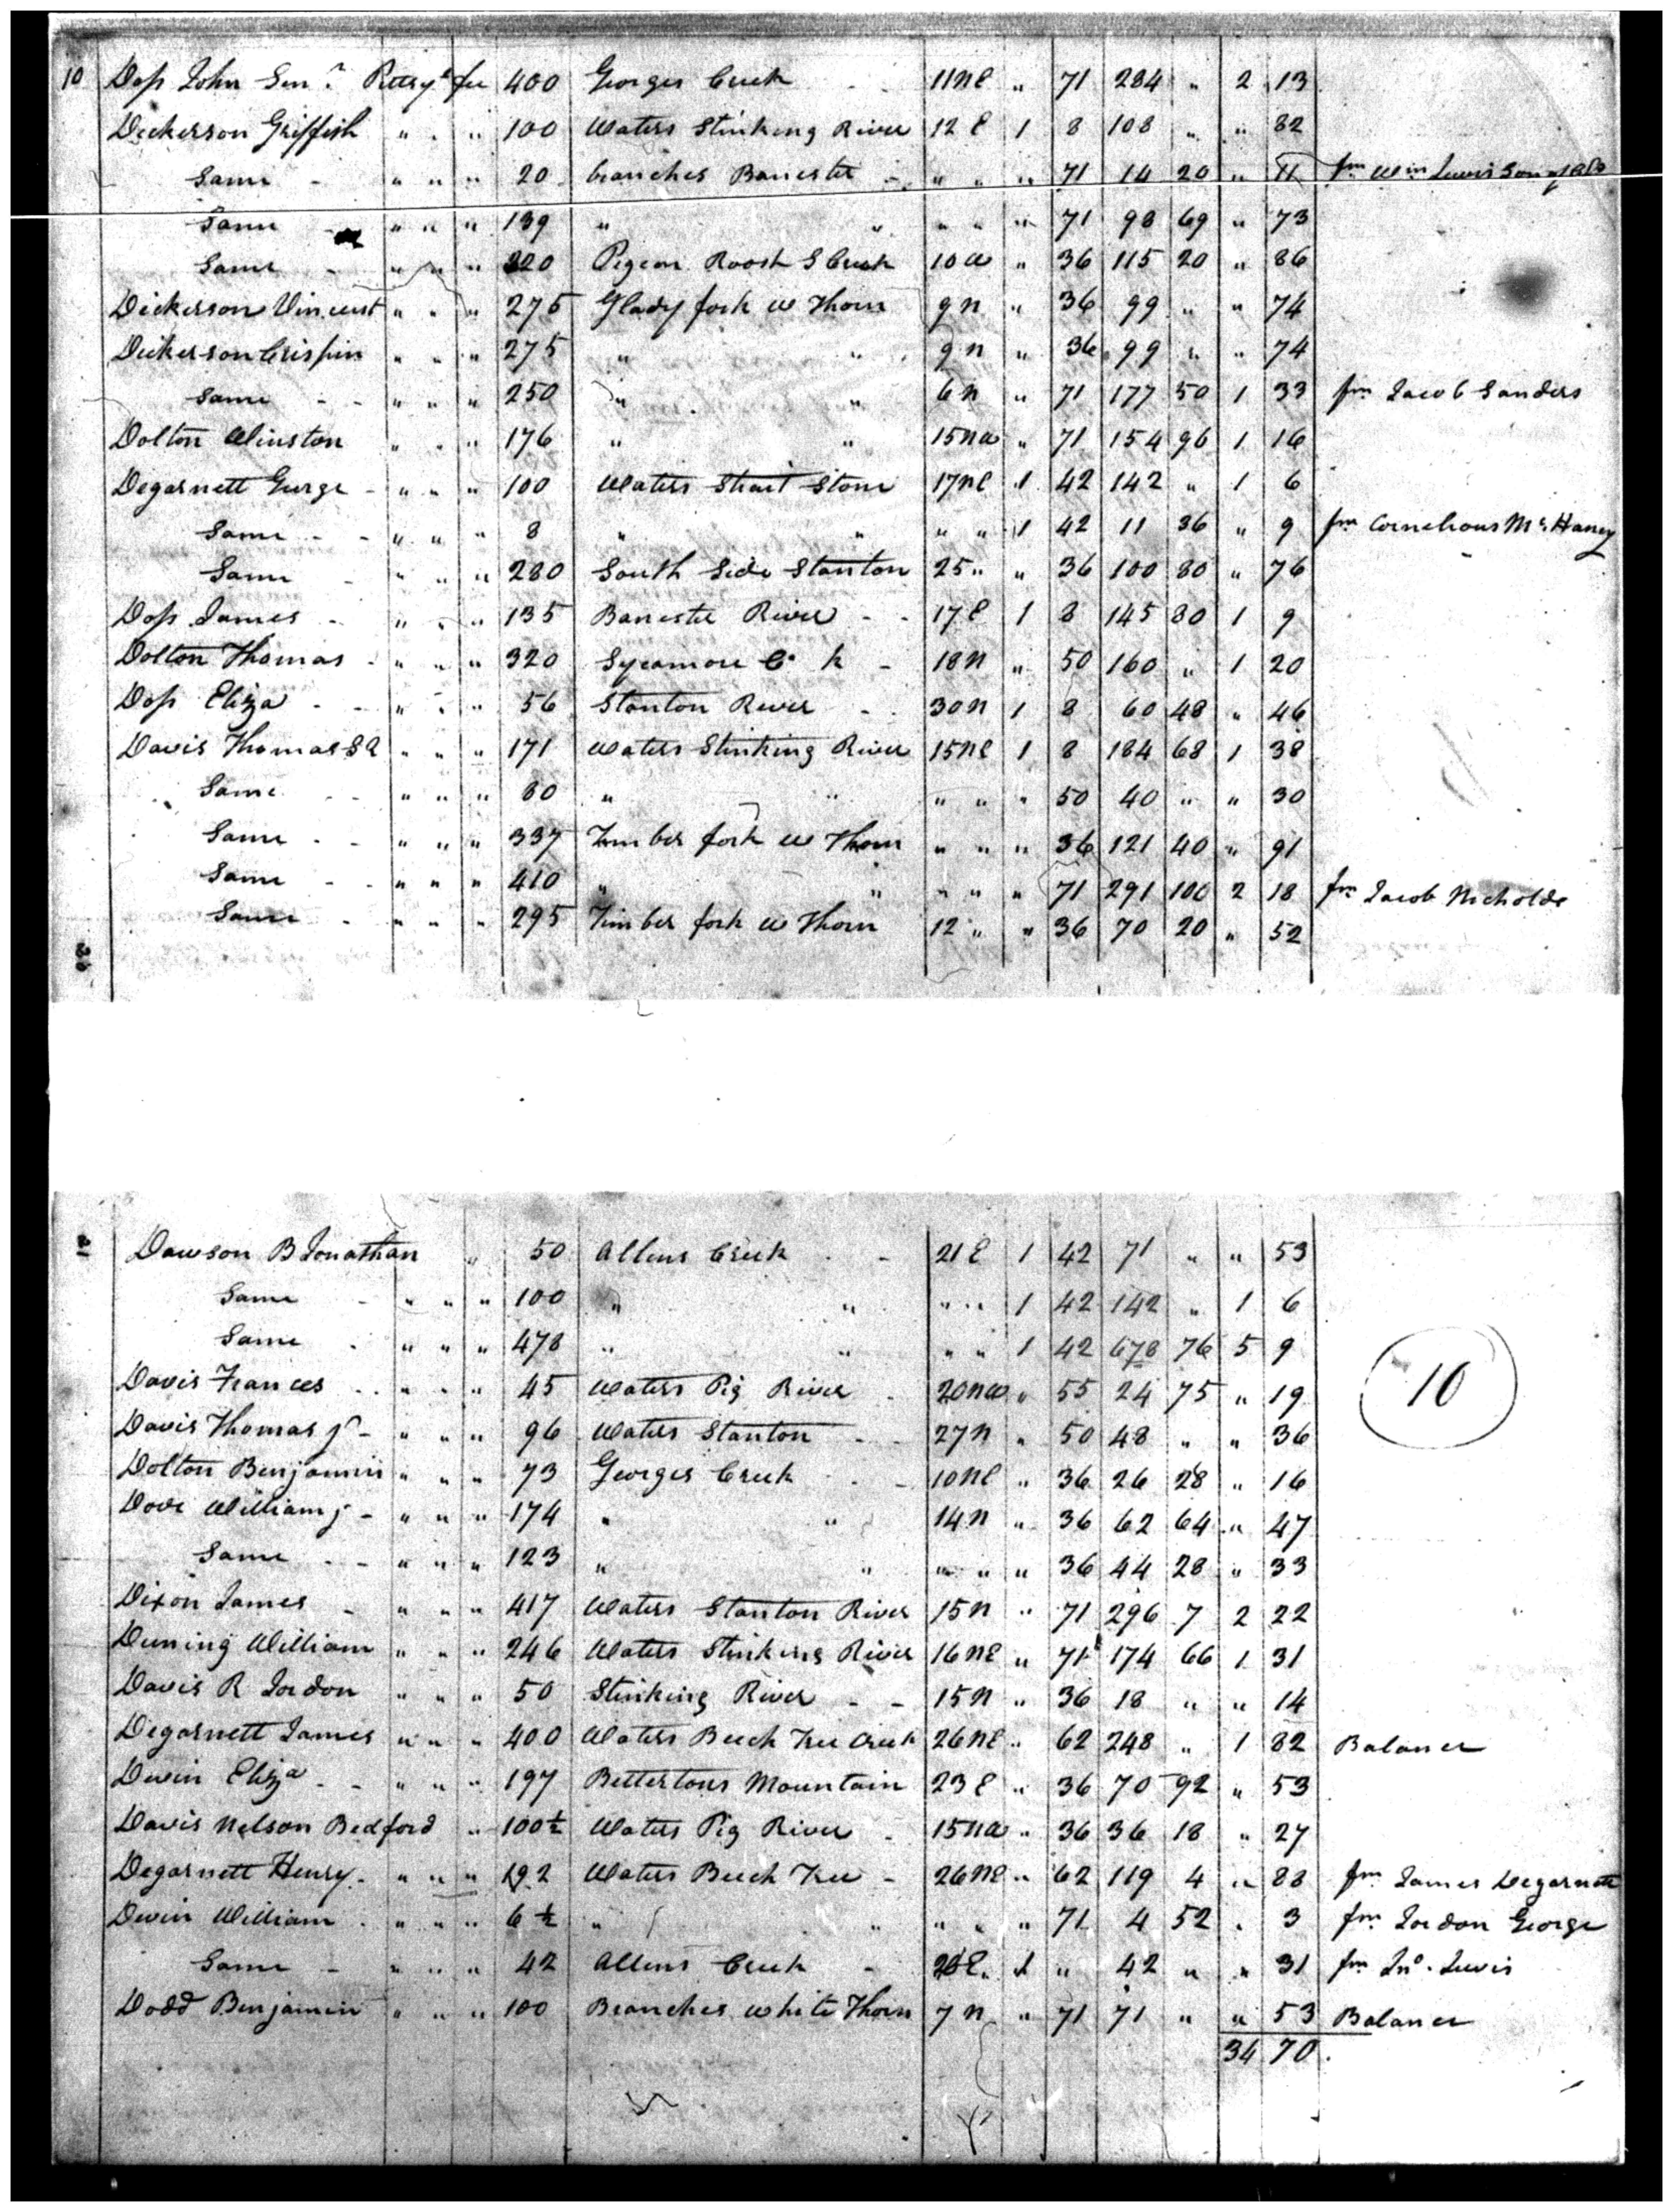 10 Doss John Senr. Pittsya fee 400 Georges Creek - - 11 NE " 71 284 " 2 13
Dickerson Griffith " " " 100 Waters Stinking River 12 E 1 8 108 " " 82
Same - " " " 20 branches Banester - " " " 71 14 20 " 11 fm Wm Lewis Son of
Same " " " 139 " " " " " 71 98 69 " 73
Same - " " " 320 Pigeon Roost S Creek 10 W " 36 115 20 " 86
Dickerson Vincent " " " 275 Glady fork W Thorn 9 N " 36 99 " " 74
Dickerson Crispin " " " 275 " " 9 N " 36 99 " " 74
Same - - " " " 250 " " 6 N " 71 177 50 1 33 fm Jacob Sanders
Dolton Winston " " " 176 " " 15 NW " 71 154 96 1 16
Degarnett George - " " " 100 Waters Strait Stone 17 NE 1 42 142 " 1 6
Same - - " " " 8 " " " " 1 42 11 36 " 9 fm Cornelious McHaney
Same - " " " 280 South Side Stanton 25 " " 36 100 80 " 76
Doss James - " " " 135 Banester River - - 17 E 1 8 145 80 1 9
Dolton Thomas - " " " 320 Sycamore C k - 18 N " 50 160 " 1 20
Doss Eliza - - " " " 56 Stanton River - - 30 N 1 8 60 48 " 46
Davis Thomas SR " " " 171 Waters Stinking River 15 NE 1 8 184 68 1 38
Same - - " " " 80 " " " " " 50 40 " " 30
Same - - " " " 337 Timber fork W Thorn " " " 36 121 40 " 91
Same - - " " " 410 " " " " " 71 291 100 2 18 fm Jacob Nicholds
Same - " " " 295 Timber fork W Thorn 12 " " 36 70 20 " 52
Dawson B Jonathan " 50 Allens Creek - - 21 E 1 42 71 " " 53
Same - " " " 100 " " " " 1 42 142 " 1 6
Same - " " " 478 " " " " 1 42 678 76 5 9
10
Davis Frances - - " " " 45 Waters Pig River - 20 NW " 55 24 75 " 19
Davis Thomas jr - " " " 96 Waters Stanton - - 27 N " 50 48 " " 36
Dolton Benjamin " " " 73 Georges Creek - - 10 NE " 36 26 28 " 16
Dove William j - " " " 174 " " 14 N " 36 62 64 " 47
Same - - " " " 123 " " " " " 36 44 28 " 33
Dixon James - " " " 417 Waters Stanton River 15 N " 71 296 7 2 22
Duning William " " " 246 Waters Stinking River 16 NE " 71 174 66 1 31
Davis R Jordon " " " 50 Stinking River - - 15 N " 36 18 " " 14
Degarnett James " " " 400 Waters Beech Tree Creek 26 NE " 62 248 " 1 82 Balance
Devin Eliza - - " " " 197 Bettertons Mountain 23 E " 36 70 92 " 53
Davis Nelson Bedford " 100½ Waters Pig River - 15 NW " 36 36 18 " 27
Degarnett Henry - " " " 192 Waters Beech Tree - 26 NE " 62 119 4 " 88 fm James Degarnett
Devin William - " " " 6½ " " " " " 71 4 52 " 3 fm Jordon George
Same - " " " 42 Allens Creek - E 1 " 42 " " 31 fm Jno. Lewis
Dodd Benjamin " " " 100 Branches white Thorn 7 N " 71 71 " " 53 Balance
34 70